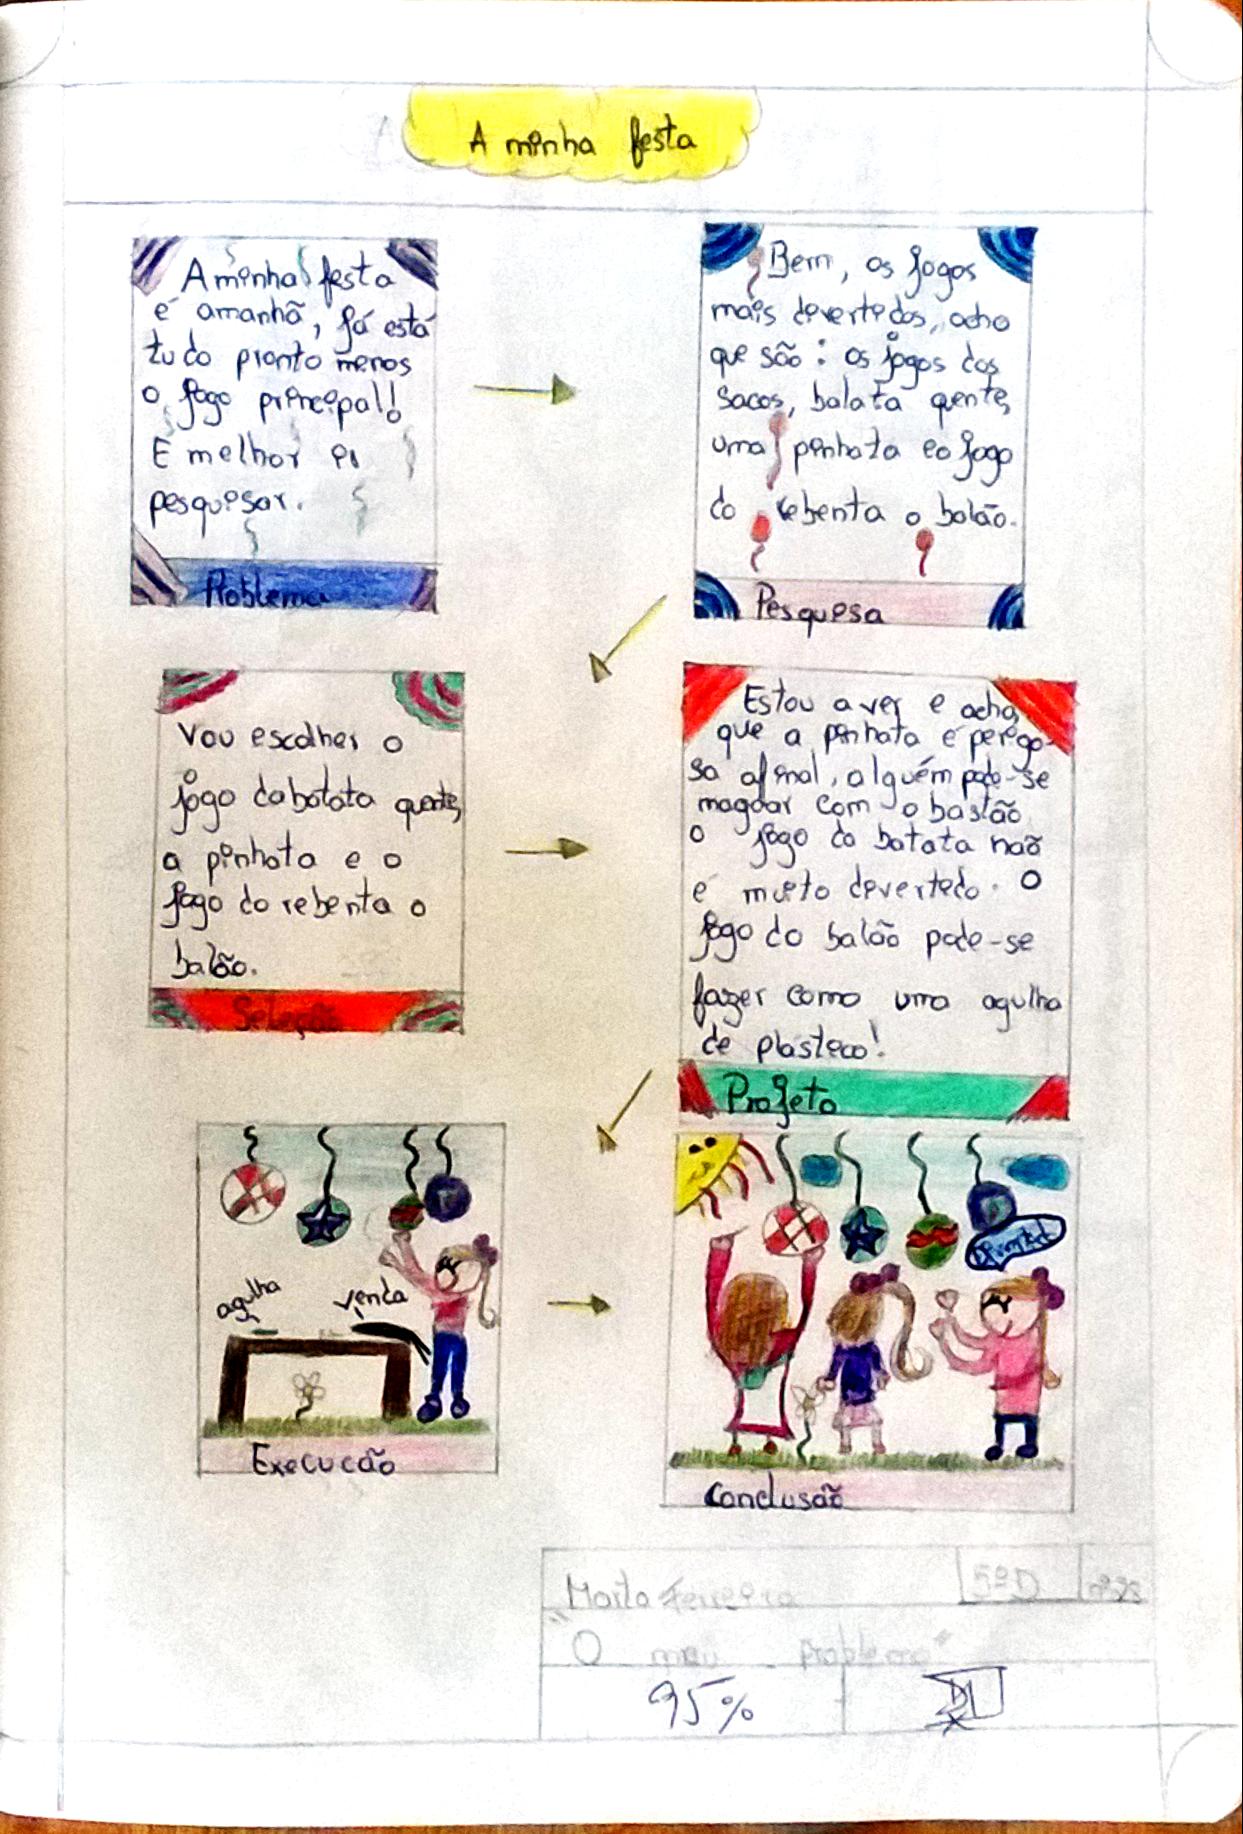 A minha festa
A minha festa
é amanhã, já está
tudo pronto menos
o jogo principal!
É melhor ir
pesquisar.
Problema
Bem, os jogos
mais divertidos, acho
que são: os jogos dos
sacos, batata quente,
uma pinhata e o jogo
do rebenta o balão.
Pesquisa
Vou escolher o
jogo da batata quente,
a pinhata e o
jogo do rebenta o
balão.
Seleção
Estou a ver e acho,
que a pinhata é perigo-
sa afinal, alguém pode-se
magoar com o bastão
o jogo da batata não
é muito divertido. O
jogo do balão pode-se
fazer como uma agulha
de plástico!
Projeto
agulha
venda
Execucão
Conclusão
Marta Ferreira 5ºD
"O meu problema"
95%